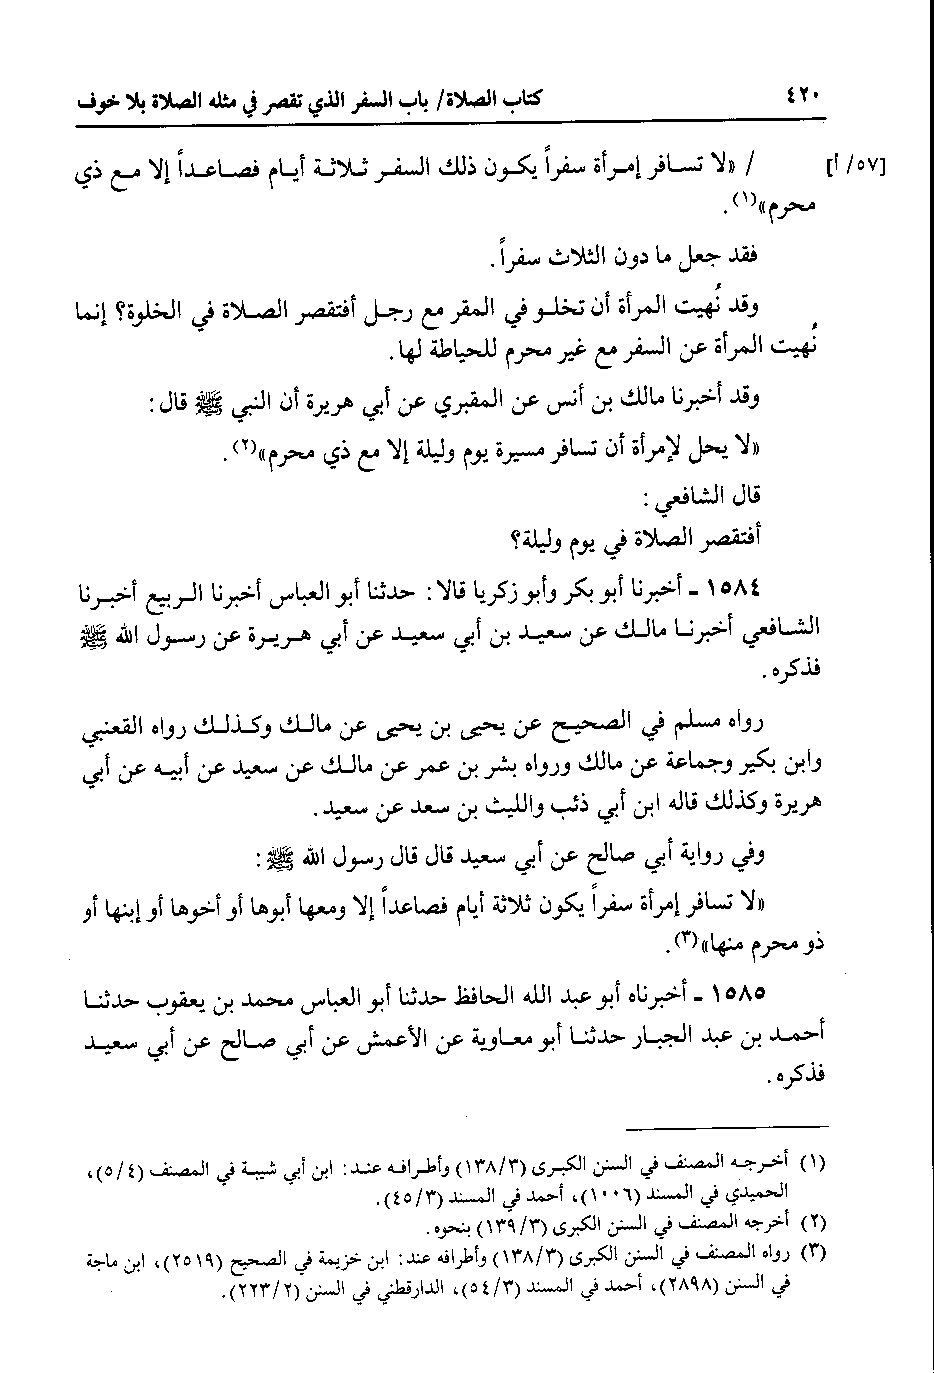 ٤٢٠ كتاب الصلاة/ باب السفر الذي تقصر في مثله الصلاة بلا خوف
[٥٧/ أ] / «لا تسافر إمرأة سفراً يكون ذلك السفر ثلاثة أيام فصاعداً إلا مع ذي
محرم»(١).
فقد جعل ما دون الثلاث سفراً.
وقد نُهيت المرأة أن تخلو في المقر مع رجل أفتقصر الصلاة في الخلوة؟ إنما
نُهيت المرأة عن السفر مع غير محرم للحياطة لها.
وقد أخبرنا مالك بن أنس عن المقبري عن أبي هريرة أن النبي ﷺ قال:
«لا يحل لإمرأة أن تسافر مسيرة يوم وليلة إلا مع ذي محرم»(٢).
قال الشافعي:
أفتقصر الصلاة في يوم وليلة؟
١٥٨٤ - أخبرنا أبو بكر وأبو زكريا قالا: حدثنا أبو العباس أخبرنا الربيع أخبرنا
الشافعي أخبرنا مالك عن سعيد بن أبي سعيد عن أبي هريرة عن رسول الله ﷺ
فذكره.
رواه مسلم في الصحيح عن يحيى بن يحيى عن مالك وكذلك رواه القعنبي
وابن بكير وجماعة عن مالك ورواه بشر بن عمر عن مالك عن سعيد عن أبيه عن أبي
هريرة وكذلك قاله ابن أبي ذئب والليث بن سعد عن سعيد.
وفي رواية أبي صالح عن أبي سعيد قال قال رسول الله ﷺ:
«لا تسافر إمرأة سفراً يكون ثلاثة أيام فصاعداً إلا ومعها أبوها أو أخوها أو إبنها أو
ذو محرم منها»(٣).
١٥٨٥ - أخبرناه أبو عبد الله الحافظ حدثنا أبو العباس محمد بن يعقوب حدثنا
أحمد بن عبد الجبار حدثنا أبو معاوية عن الأعمش عن أبي صالح عن أبي سعيد
فذكره.
(١) أخرجه المصنف في السنن الكبرى (١٣٨/٣) وأطرافه عند: ابن أبي شيبة في المصنف (٥/٤)،
الحميدي في المسند (١٠٠٦)، أحمد في المسند (٤٥/٣).
(٢) أخرجه المصنف في السنن الكبرى (١٣٩/٣) بنحوه.
(٣) رواه المصنف في السنن الكبرى (١٣٨/٣) وأطرافه عند: ابن خزيمة في الصحيح (٢٥١٩)، ابن ماجة
في السنن (٢٨٩٨)، أحمد في المسند (٥٤/٣)، الدارقطني في السنن (٢٢٣/٢).